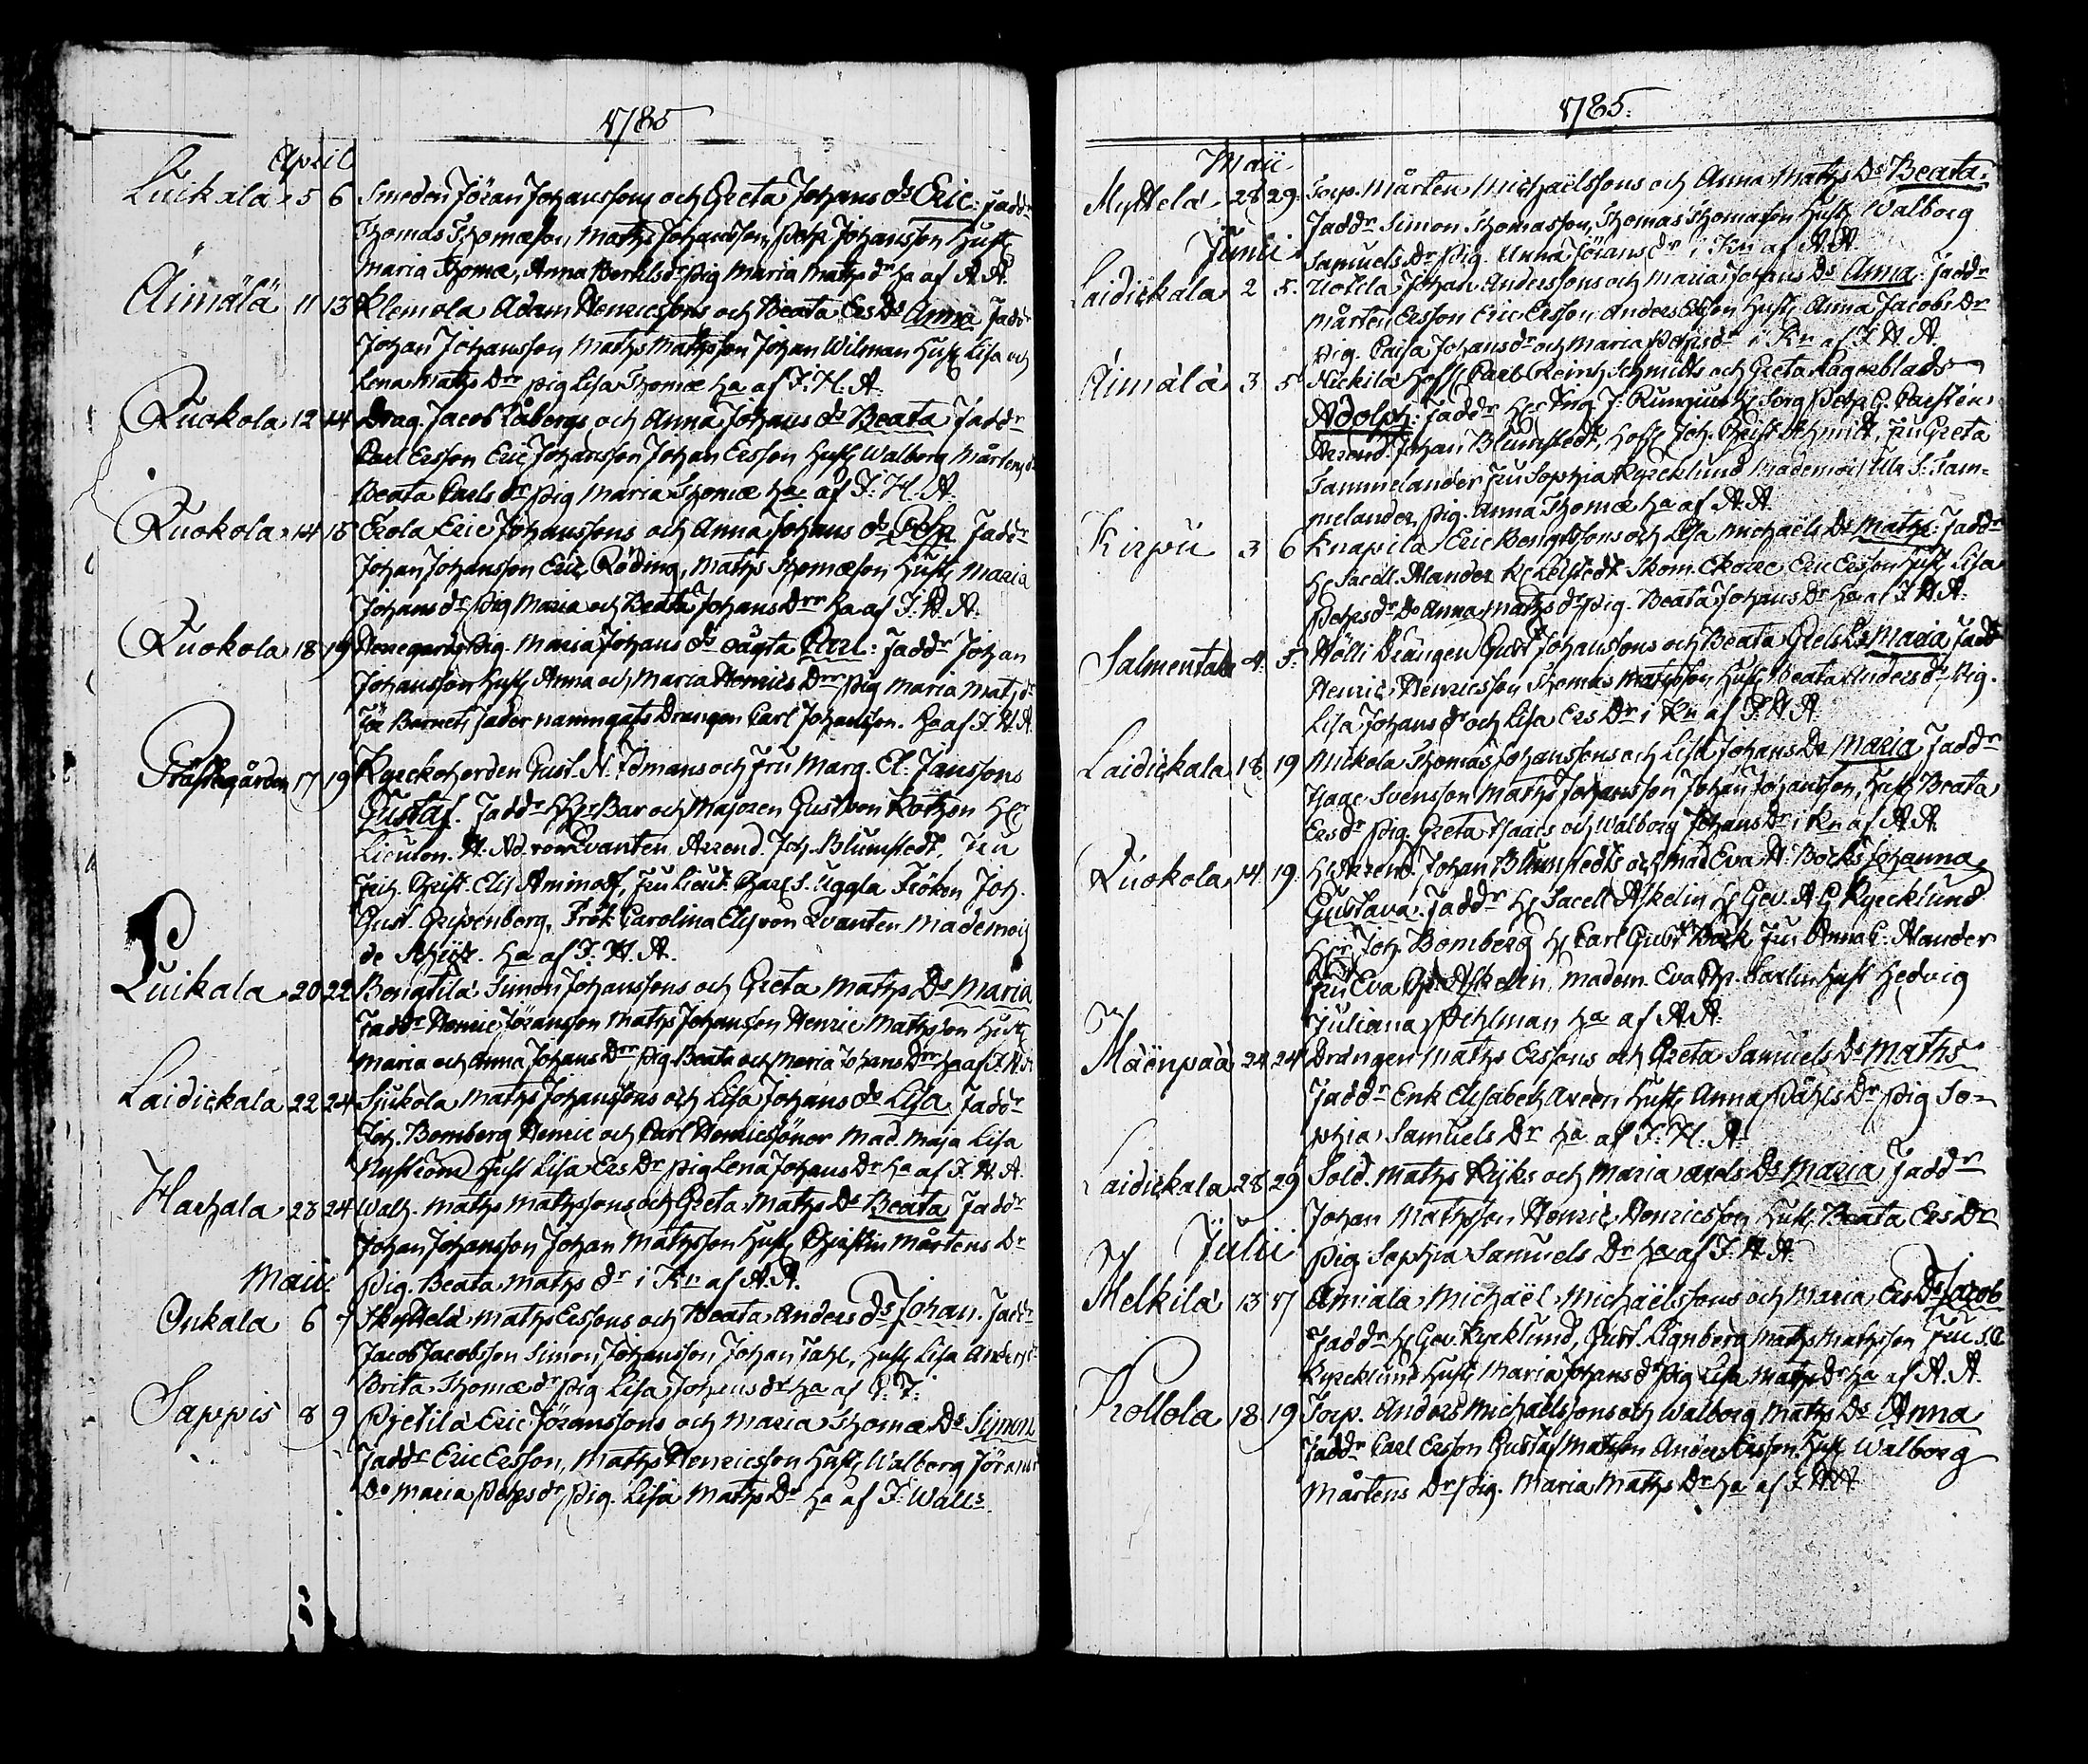 1785
April
Luikala 5 6 Smeden Jöran Johanssons och Greta Johans ds Eric: Faddr
Thomas Thomæson, Maths Johansson, Pehr Johansson Hustr
Maria Thomæ, Anna Bertils dr Pig Maria Maths dr ha af A. A.
Äimälä 11 13 Klemola Adam Henricssons och Beata Ers Ds Anna Faddr
Johan Johansson Maths Mathsson Johan Wilman Hustr Lisa och
Lena Maths Drr pig Lisa Thomæ ha af J. H. A.
Ruokola 12 14 Drag. Jacob Låbergs och Anna Johans ds Beata Faddr
Carl Ersson Eric Johansson Johan Ersson Hustr Walborg Mårtens dr
Beata Carls dr Pig Maria Thomæ ha af J. H. A.
Ruokola 14 15 Erola Eric Johanssons och Anna Johans ds Pehr Faddr
Johan Johansson Eric Röding, Maths Thomæson Hustr Maria
Johans dr Pig Maria och Beata Johans Drr ha af J. H. A.
Ruokola 18 19 Pig. Maria Johans ds oägta Carl: Faddr Johan
Johansson Hustr Anna och Maria Henrics Drr Pig Maria Mats dr
Til Barnets Fader namngafs Drängen Carl Johansson. ha af J. H. A.
Prästegården 17 19 Kyrckoherden Gust. N. Idmans och Fru Marg. El: Janssons
Gustaf. Faddr Bar och Majoren Gust von Köthen Hr
Lieuten. H. Ad. von Qvanten Arrend. Joh. Blumstedt, Fru
Frih. Christ. Elis Aminoff, Fru Lieut. Charl. S. Uggla Fröken Joh.
Gust. Gripenberg, Frök Carolina Elis von Qvanten Mademois
de Schüts. ha af J. H. A.
Luikala 20 22 Bengtilä Simon Johanssons och Greta Maths Ds Maria
Faddr Henric Jöransson Maths Johansson Henric Mathsson Hustr
Maria och Anna Johans Drr Pig. Beata och Maria Johans Drr ha af J. H. A.
Laidickala 22 24 Sjukola Maths Johanssons och Lisa Johans ds Lisa Faddr
Joh. Bomberg Henric och Carl Henricsönor Mad. Maja Lisa
Nyström Hust Lisa Ers Dr pig Lena Johans Dr ha af J. H. A.
Hachala 23 24 Walh. Maths Mathssons och Greta Maths Ds Beata Faddr
Johan Johansson Johan Mathsson Hustr Christin Mårtens Dr
Maii
Pig. Beata Maths dr i Kn af A. A.
Onkala 6 7 Skyttelä Maths Erssons och Beata Anders ds Johan. Faddr
Jacob Jacobsson Simon Johansson, Johan Tahl, Hustr Lisa Anders dr
Brita Thomæ dr Pig Lisa Johans dr ha af
Sappis 8 9 Pjetilä Eric Jöranssons och Maria Thomæ Ds Simon
Faddr Eric Ersson, Maths Henricsson Hustr Walborg Jörans
Do Maria Pehrs dr Pig. Lisa Maths Dr ha af J: Walls.
1785.
Maii
Myttelä 28 29. Torp. Mårten Michaëlssons och Anna Maths Ds Beata.
Faddr Simon Thomasson, Thomas Thomæson Hustr Walborg
Junii
Samuels Dr Pig. Anna Jörans dr i Kn af A. A
Laidickala 2 5. Uotila Johan Anderssons och Maria Johans Ds Anna. Faddr
Mårten Ersson Eric Ersson Anders Ersson Hustr Anna Jacobs Dr
Pig. Caisa Johans dr och Maria Pehrs dr i Kn af J. H. A.
Äimälä 3 5 Nickilä Hofsl Carl Reinh Schmidts och Greta Lagerblads
Adolph: Faddr Hr Ing J: Rungius Hr Serg Pehr G. Carstén
Arrend. Johan Blumstedt, Hofsl Joh. Christ Schmidt, Fru Greta
Sammelander Fru Sophia Kyrcklund Mademois Ulr S: Sam-
melander, Pig. Anna Thomæ ha af A. A
Kirpii 3 6 Knapila Eric Bengtssons och Lisa Michaëls Ds Maths: Faddr
Hr Sacell. Alander Skom. Ekorre Eric Ersson Hustr Lisa
Pehrs dr Do Anna Maths dr Pig. Beata Johans Dr ha af J. H. A.
Salmentaka 4. 5. Hölli Drängen Gust Johanssons och Beata Grels Ds Maria Fadd
Henric Henricsson Thomas Mathsson Hustr Beata Anders dr, Pig.
Lisa Johans dr och Lisa Ers Dr i Kn af J. H. A
Laidickala 18. 19 Mickola Thomas Johanssons och Lisa Johans Ds Maria Faddr
Isaac Svensson Maths Johansson Johan Johansson, Hustr Beata
Ers dr Pig. Greta Isaacs och Walborg Johans Dr i Kn af A. A.
Ruokola 14. 19. Hr Arrend. Johan Blumstedts och Mad Eva A: Bocks Johanna
Gustava. Faddr Hr Sacell Askelin Hr Gev. A G Kyrcklund
Hrr Joh. Bomberg Hr Carl Gust Bock Fru Anna C: Alander
Fru Eva Askelin, Madem. Eva Carlin Hust Hedvig
Juliana Pihlman ha af A A.
Mäenpää 24 24 Drängen Maths Erssons och Greta Samuels Ds Maths
Faddr Enk Elisabeth Aveen Hustr Anna Påhls Dr Pig So-
phia Samuels Dr ha af J. H. A
Laidickala 28. 29 Sold. Maths Ryks och Maria Axels Ds Maria Faddr
Johan Mathsson Henric Henricsson Hustr Beata Ers Dr
Julii
Pig Sophia Samuels Dr ha af J. H. A
Melkilä 13 17 Äimälä Michaël Michaëlssons och Maria Ers Ds Jacob
Faddr Hr Gev. Kyrklund, Gust. Lignberg Maths Mathsson Fru S. C
Kyrcklund Hustr Maria Johans dr Pig Lisa Maths Dr ha af A. A.
Kollola 18. 19 Torp. Anders Michaëlssons och Walborg Maths Ds Anna
Faddr Carl Ersson Gustaf Matsson Anders Ersson Hustr Walborg
Mårtens Dr Pig. Maria Maths Dr ha af J. H. A